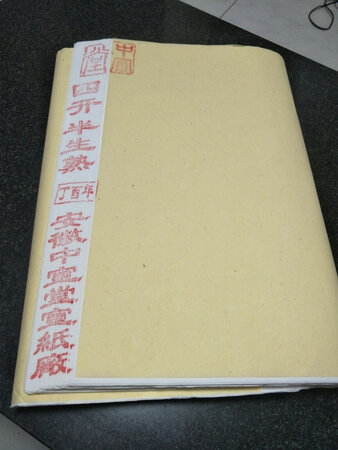 中国
四开半生熟
丁酉年
安徽中宣堂宣紙廠